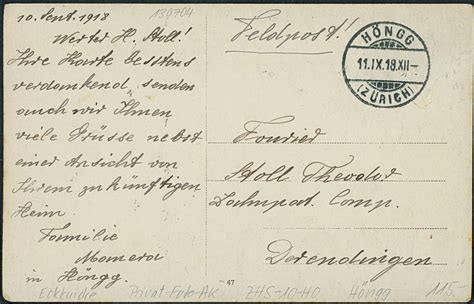 10. Sept. 1918
130704
Werter H. Stoll!
Ihre Karte bestens
verdankend, senden
auch wir Ihnen
viele Grüsse nebst
einer Ansicht von
Ihrem zukünftigen
Heim
Familie
in Höngg.
Feldpost!
HÖNGG
11.IX.18.XII–
(ZÜRICH)
Fourier
Stoll Theodor
Landwpat. Comp.
Derendingen
47
Privat-Foto-AK
ZHS-10-HO
Höngg
115.-